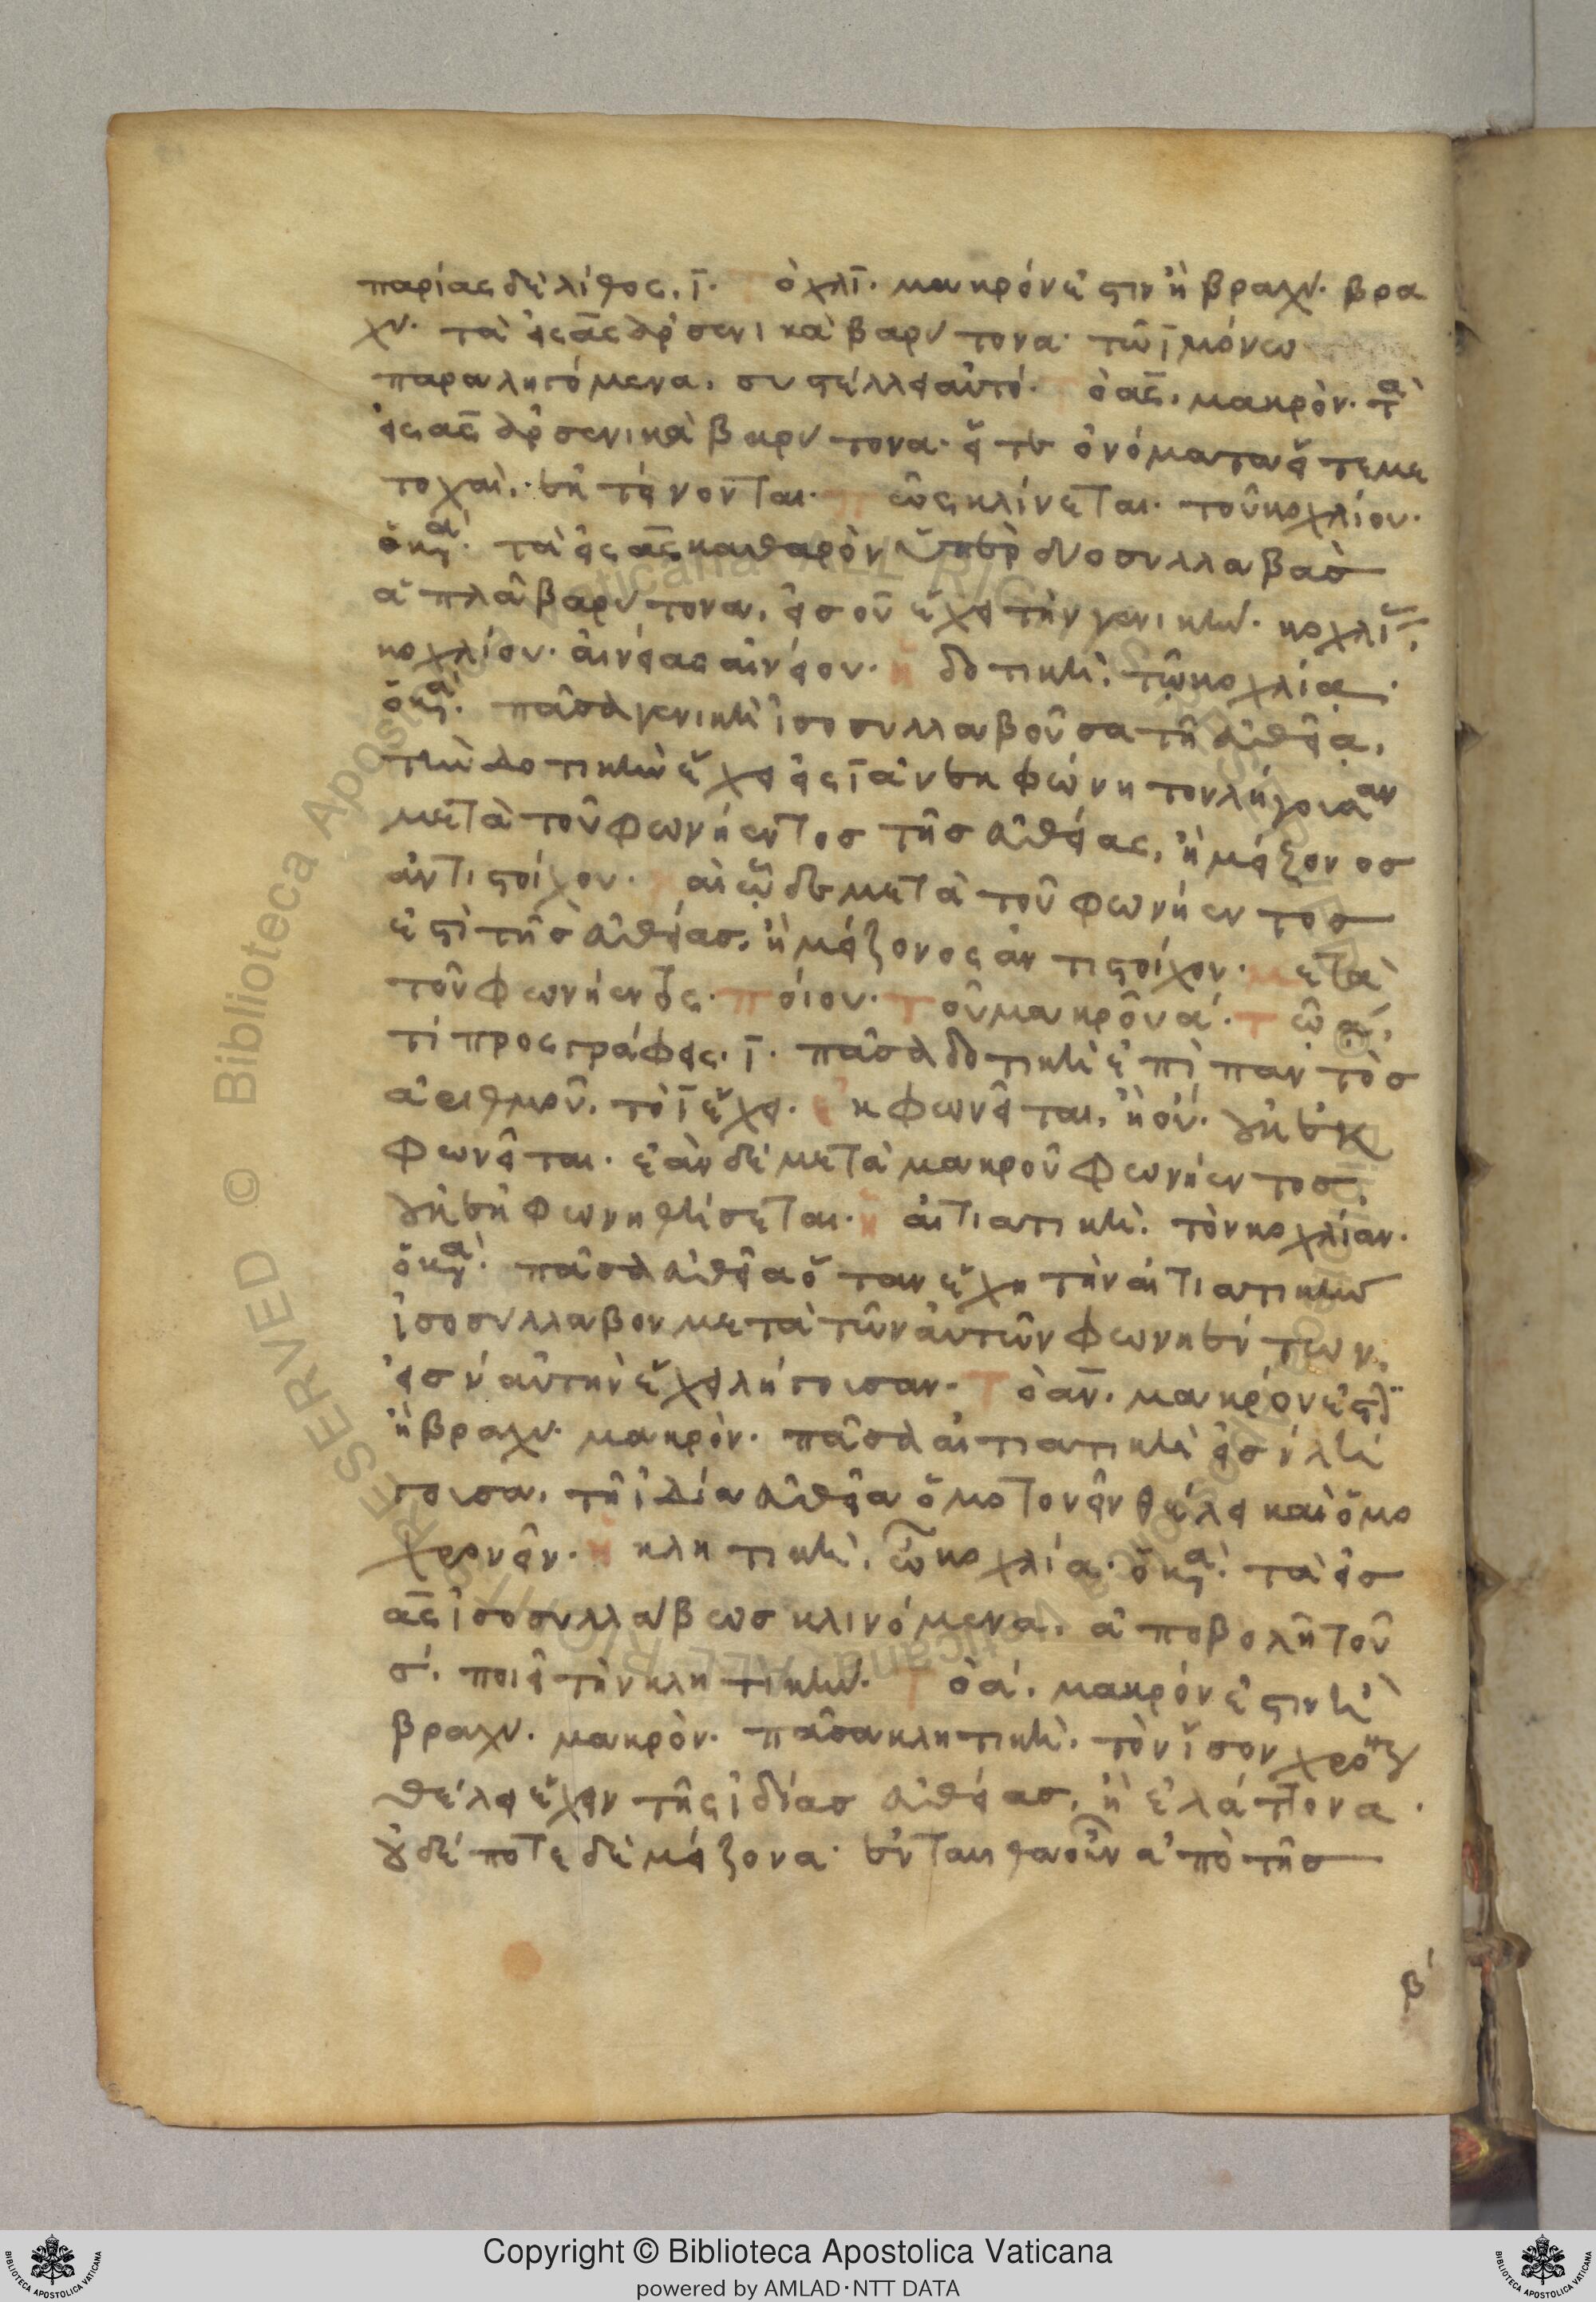 παρίας δὲ λίθος, ϊ. ὀχλϊ. μακρόν ἐστιν ἢ βραχύ. βρα
χύ. τὰ εἰς ας ἀρσενικὰ βαρύτονα τῶ ϊ μόνω
παραληγόμενα, συστέλλει αὐτό. ὁ ας, μακρόν. τὰ
εἰς ας ἀρσενικὰ βαρύτονα. εἴτε ὀνόματα εἴτε με
τοχαὶ, ἐκτείνονται. πῶς κλίνεται. τοῦ κοχλίου.
τὰ εἰς ας καθαρὸν ὑπὲρ δύο συλλαβὰσ
ἁπλᾶ βαρύτονα, εἰσ ου ἔχει τὴν γενικήν. κοχλίας,
κοχλίου. αἰνείας αἰνείου. ἡ δοτικὴ, τῶ κοχλία.
πᾶσα γενικὴ ἰσοσυλλαβοῦσα τῆ εὐθεία,
τὴν δοτικὴν ἔχει εἰς ϊ ἀνεκφώνητον λήγουσαν
μετὰ τοῦ φωνήεντοσ τῆσ εὐθείας, ἢ μείζονοσ
ἀντιστοίχου. αὕτη δὲ μετὰ τοῦ φωνήεντοσ
ἐστὶ τῆσ εὐθείασ, ἢ μείζονος ἀντιστοίχου. μετὰ
τοῦ φωνήεντος. ποίου. τοῦ μακροῦ α. τῶ α,
τί προσγράφεις. ϊ. πᾶσα δοτικὴ ἐπὶ παντὸσ
ἀριθμοῦ, τὸ ϊ ἔχει. ἐκφωνεῖται, ἢ οὔ. οὐκ ἐκ
φωνεῖται. ἐὰν δὲ μετὰ μακροῦ φωνήεντοσ,
οὐκ ἐκφωνηθήσεται. ἡ αἰτιατικὴ, τὸν κοχλίαν.
πᾶσα εὐθεῖα ὅταν ἔχη τὴν αἰτιατικὴν
ἰσοσύλλαβον μετὰ τῶν αὐτῶν φωνηέντων,
εἰσ ν αὐτὴν ἔχει λήγουσαν. τὸ αν, μακρόν ἐστιν
ἢ βραχύ. μακρόν. πᾶσα αἰτιατικὴ εἰσ ν λή
γουσα, τῆ ἰδία εὐθεία ὁμοτονεῖν θέλει καὶ ὁμο
χρονεῖν. ἡ κλητικὴ, ὦ κοχλία. τὰ εἰσ
ας ἰσοσυλλάβωσ κλινόμενα, ἀποβολῆ τοῦ
σ, ποιεῖ τὴν κλητικήν. τὸ α, μακρόν ἐστιν ἢ
βραχύ. μακρόν. πᾶσα κλητικὴ, τὸν ἴσον χρόνον
θέλει ἔχειν τῆς ἰδίασ εὐθείασ, ἢ ἐλάττονα.
οὐδέποτε δὲ μείζονα. ἐνταῦθα οὖν ἀπὸ τῆσ
β'
Copyright © Biblioteca Apostolica Vaticana
powered by AMLAD·NTT DATA